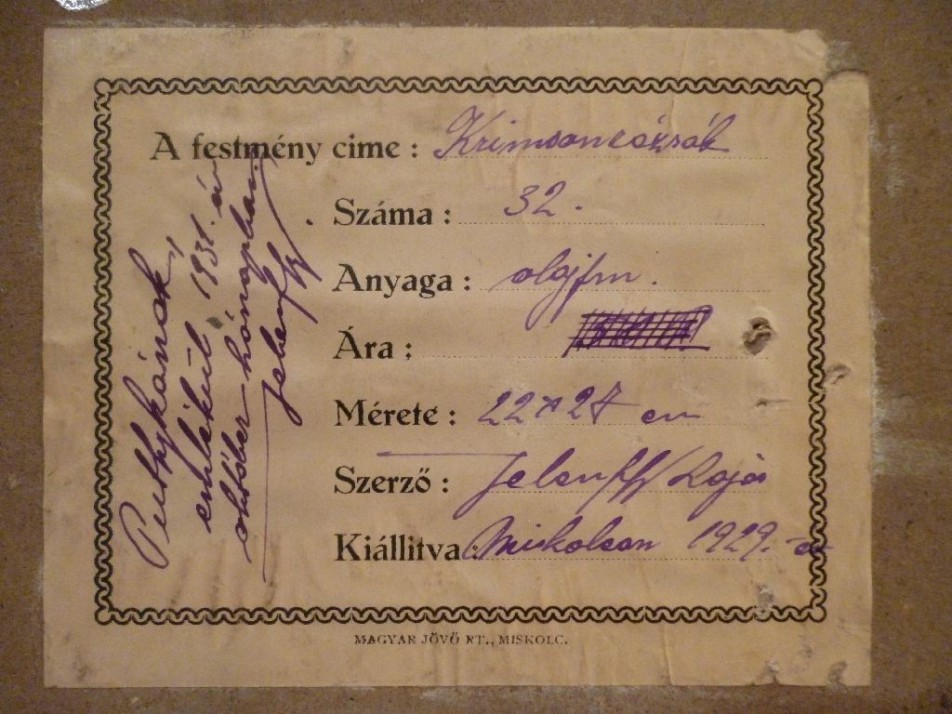 A festmény cime : Krimsonrózsák
Száma : 32.
Anyaga : olajfm.
Ára :
Mérete : 22 x 27 cm
Szerző : Jelenffy Lajos
Kiállitva : Miskolcon 1929.-en
MAGYAR JÖVŐ RT., MISKOLC.
emlékül 1931. év
október hónapban.
Jelenffy